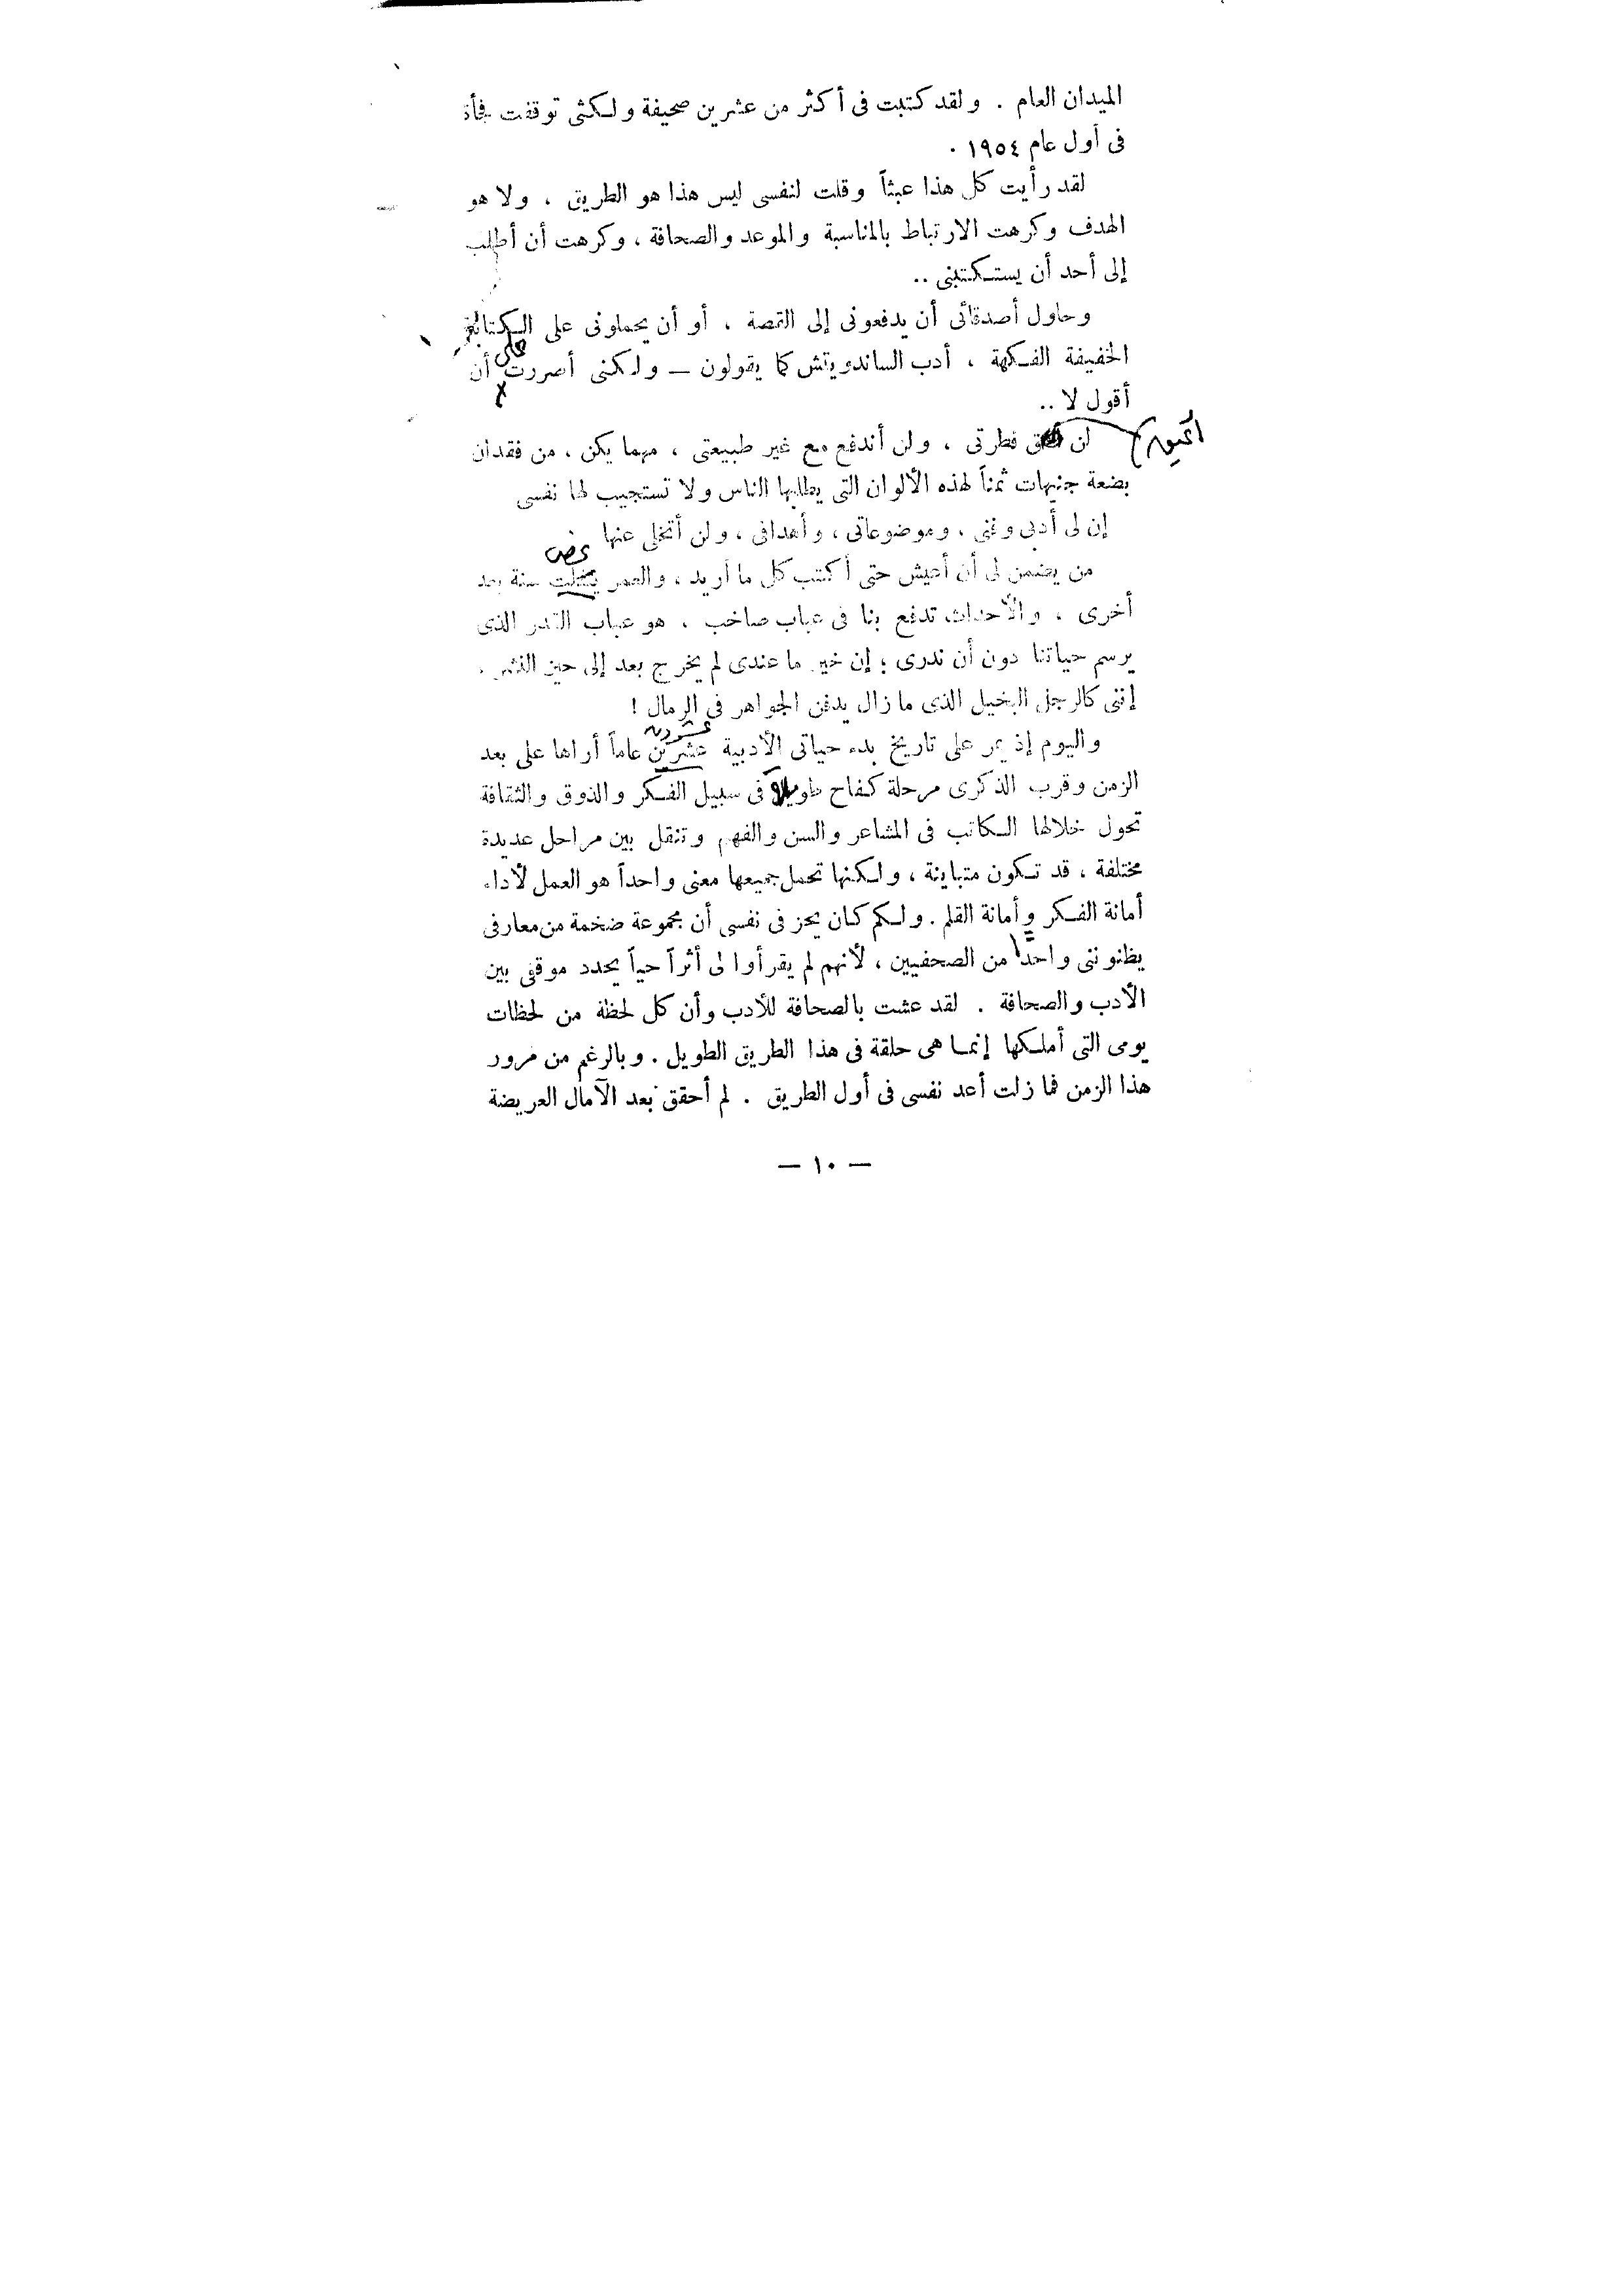 الميدان العام . ولقد كتبت فى أكثر من عشرين صحيفة ولكنى توقفت فجأة
فى أول عام ١٩٥٤ .
لقد رأيت كل هذا عبثاً وقلت لنفسى ليس هذا هو الطريق ، ولا هو
الهدف وكرهت الارتباط بالمناسبة والموعد والصحافة ، وكرهت أن أطلب
إلى أحد أن يستكتبنى ..
وحاول أصدقائى أن يدفعونى إلى القصة ، أو أن يحملونى على الكتابة
الخفيفة الفكهة ، أدب الساندويتش كما يقولون — ولكنى أصررت على أن
أقول لا ..
لن فطرتى ، ولن أندفع مع غير طبيعتى ، مهما يكن ، من فقدان
بضعة جنيهات ثمناً لهذه الألوان التى يطلبها الناس ولا تستجيب لها نفسى
إن لى أدبى وفنى ، وموضوعاتى ، وأهدافى ، ولن أتخلى عنها
من يضمن لى أن أعيش حتى أكتب كل ما أريد ، والعمر سنة بعد
أخرى ، والأحداث تدفع بنا فى عباب صاخب ، هو عباب القدر الذى
يرسم حياتنا دون أن ندرى ؛ إن خير ما عندى لم يخرج بعد إلى حيز النشر .
إننى كالرجل البخيل الذى ما زال يدفن الجواهر فى الرمال !
عشرون
واليوم إذ يمر على تاريخ بدء حياتى الأدبية عشرين عاماً أراها على بعد
الزمن وقرب الذكرى مرحلة كفاح فى سبيل الفكر والذوق والثقافة
تحول خلالها الكاتب فى المشاعر والسن والفهم وتنقل بين مراحل عديدة
مختلفة ، قد تكون متباينة ، ولكنها تحمل جميعها معنى واحداً هو العمل لأداء
أمانة الفكر وأمانة القلم . ولكم كان يحز فى نفسى أن مجموعة ضخمة من معارفى
يظنوننى واحداً من الصحفيين ، لأنهم لم يقرأوا لى أثراً حياً يحدد موقفى بين
الأدب والصحافة . لقد عشت بالصحافة للأدب وأن كل لحظة من لحظات
يومى التى أملكها إنما هى حلقة فى هذا الطريق الطويل . وبالرغم من مرور
هذا الزمن فما زلت أعد نفسى فى أول الطريق . لم أحقق بعد الآمال العريضة
— ١٠ —